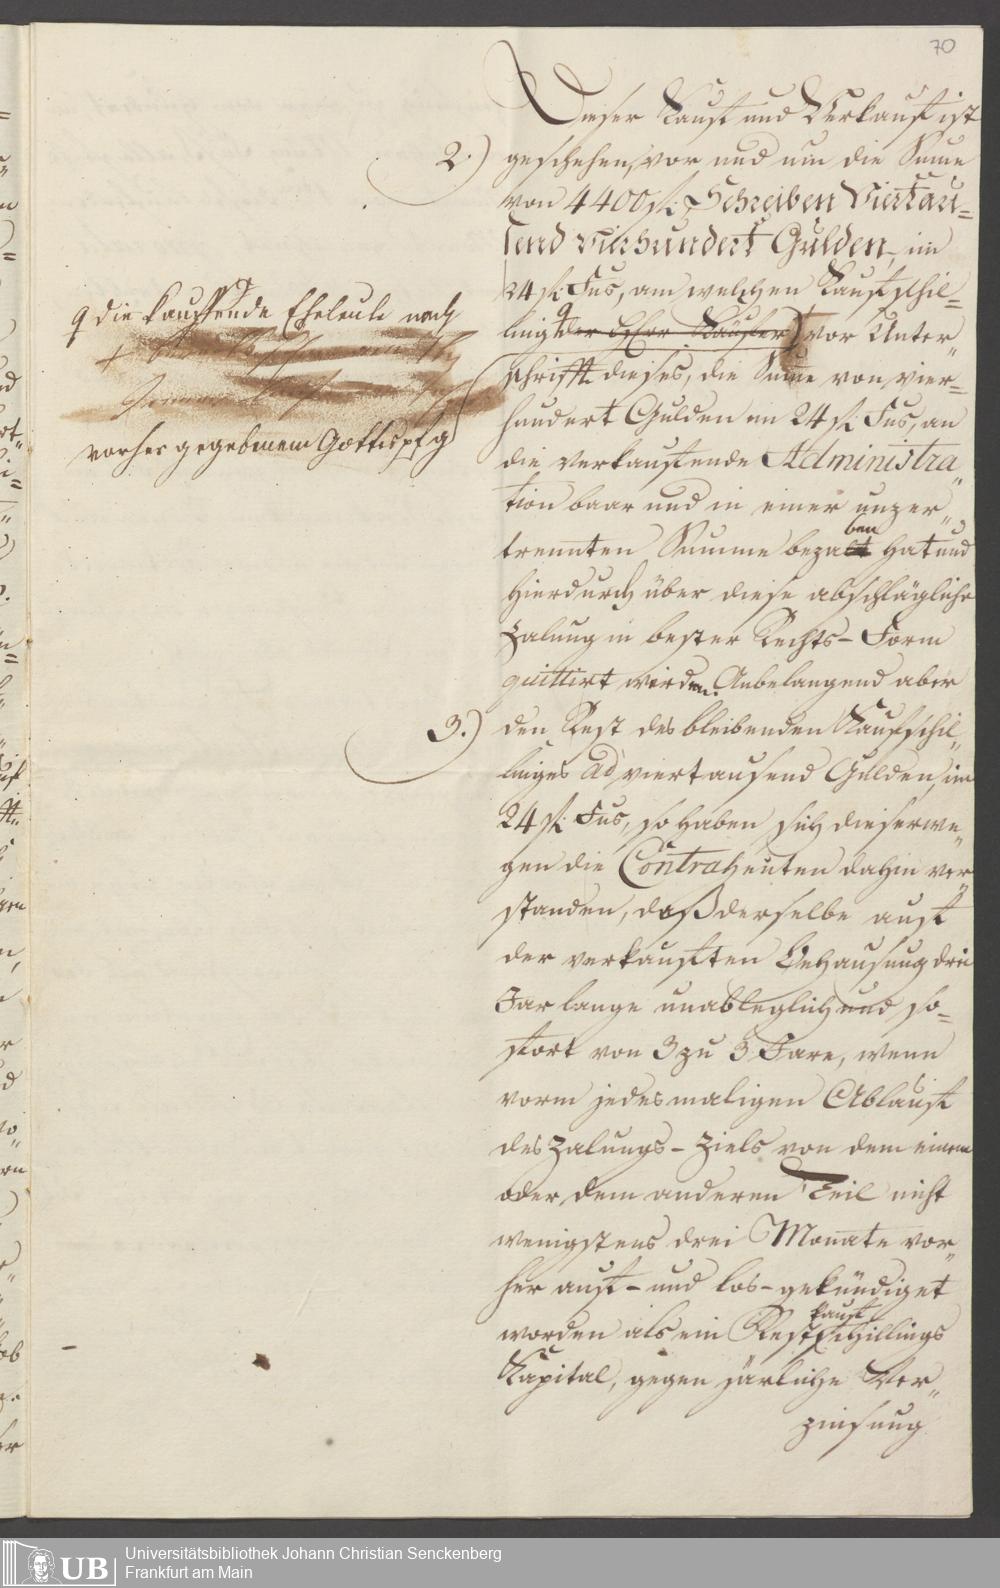 70
Dieser Kauf und Verkauf ist
2.) geschehen, vor und um die Sume
von 4400 fl: Schreiben Viertau=
send vierhundert Gulden, im
24 fl: Fus, an welchen Kaufschil=
ling der Herr Käufer vor Unter"
schrifft dieses, die Sume von vier=
hundert Gulden im 24 fl: Fus, an
die verkaufende Administra"
tion baar und in einer unzer"
trennten Summe bezalt ben hat und
hierdurch über diese abschlägliche
Zalung in bester Rechts-Form
quittirt werden. Anbelangend aber
3.) den Rest des bleibenden Kaufschil"
linges ad viertausend Gulden, im
24 fl: Fus, so haben sich dieserwe"
gen die Contrahenten dahin ver"
standen, daß derselbe auf
der verkauften Behausung drei
Jar lange unableglich und so=
fort von 3 zu 3 Jare, wenn
vorm jedesmaligen Ablauf
des Zalungs-Ziels von dem einen
oder dem anderen Teil nicht
wenigstens drei Monate vor"
her auf- und los-gekündiget
worden als ein Restkaufschillings
Kapital, gegen järliche Ver"
zinsung
die kauffende Eheleute nach
vorher gegebenem Gottespf
UB
Universitätsbibliothek Johann Christian Senckenberg
Frankfurt am Main